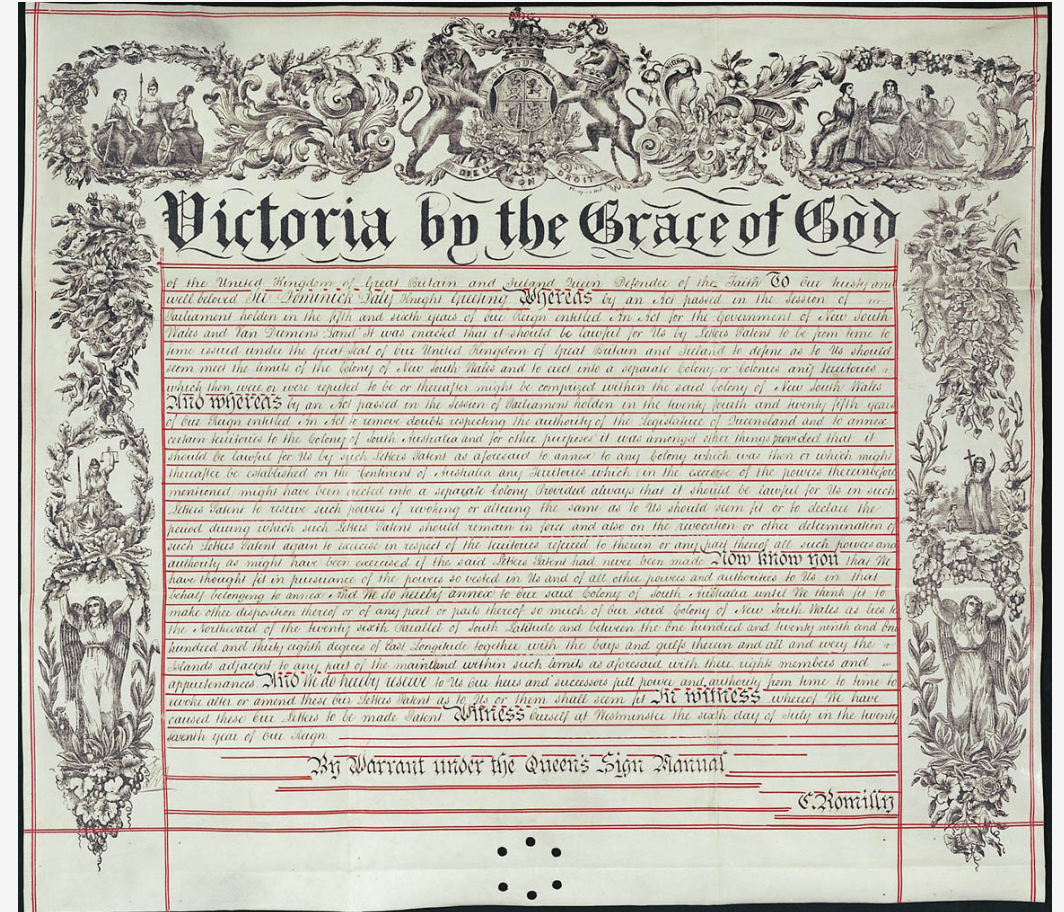 DIEU ET MON DROIT
Victoria by the Grace of God
of the United Kingdom of Great Britain and Ireland Queen Defender of the Faith To Our trusty and
well beloved Sir Dominick Daly Knight Greeting Whereas by an Act passed in the Session of
Parliament holden in the fifth and sixth years of Our Reign entitled An Act for the Government of New South
Wales and Van Diemens Land It was enacted that it should be lawful for Us by Letters Patent to be from time to
time issued under the Great Seal of Our United Kingdom of Great Britain and Ireland to define as to Us should
seem meet the limits of the Colony of New South Wales and to erect into a separate Colony or Colonies any territories
which then were or were reputed to be or thereafter might be comprized within the said Colony of New South Wales
And whereas by an Act passed in the Session of Parliament holden in the twenty fourth and twenty fifth years
of Our Reign entitled An Act to remove doubts respecting the authority of the Legislature of Queensland and to annex
certain territories to the Colony of South Australia and for other purposes it was amongst other things provided that it
should be lawful for Us by such Letters Patent as aforesaid to annex to any Colony which was then or which might
thereafter be established on the Continent of Australia any Territories which in the exercise of the powers thereinbefore
mentioned might have been erected into a separate Colony Provided always that it should be lawful for Us in such
Letters Patent to reserve such powers of revoking or altering the same as to Us should seem fit or to declare the
period during which such Letters Patent should remain in force and also on the revocation or other determination of
such Letters Patent again to exercise in respect of the territories referred to therein or any part thereof all such powers and
authority as might have been exercised if the said Letters Patent had never been made Now know you that We
have thought fit in pursuance of the powers so vested in Us and of all other powers and authorities to Us in that
behalf belonging to annex And We do hereby annex to Our said Colony of South Australia until We think fit to
make other disposition thereof or of any part or parts thereof so much of Our said Colony of New South Wales as lies to
the Northward of the twenty sixth Parallel of South Latitude and between the One hundred and twenty ninth and One
hundred and thirty eighth degrees of East Longitude together with the bays and gulfs therein and all and every the
Islands adjacent to any part of the mainland within such limits as aforesaid with their rights members and
appurtenances And We do hereby reserve to Us Our heirs and successors full power and authority from time to time to
revoke alter or amend these Our Letters Patent as to Us or them shall seem fit In witness whereof We have
caused these Our Letters to be made Patent Witness Ourself at Westminster the sixth day of July in the twenty
seventh year of Our Reign
By Warrant under the Queen's Sign Manual
C. Romilly